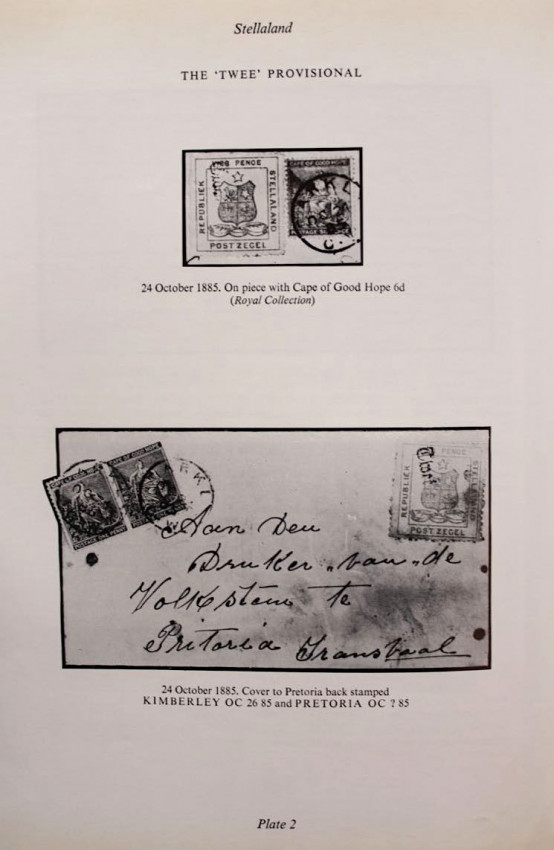 Stellaland
THE 'TWEE' PROVISIONAL
PENCE
REPUBLIEK
STELLALAND
POSTZEGEL
CAPE OF GOOD HOPE
24 October 1885. On piece with Cape of Good Hope 6d
(Royal Collection)
CAPE OF GOOD HOPE
POSTAGE ONE PENNY
PENCE
REPUBLIEK
POSTZEGEL
Aan Den
Drukker van de
Volksstem te
Pretoria Transvaal
24 October 1885. Cover to Pretoria back stamped
KIMBERLEY OC 26 85 and PRETORIA OC ? 85
Plate 2